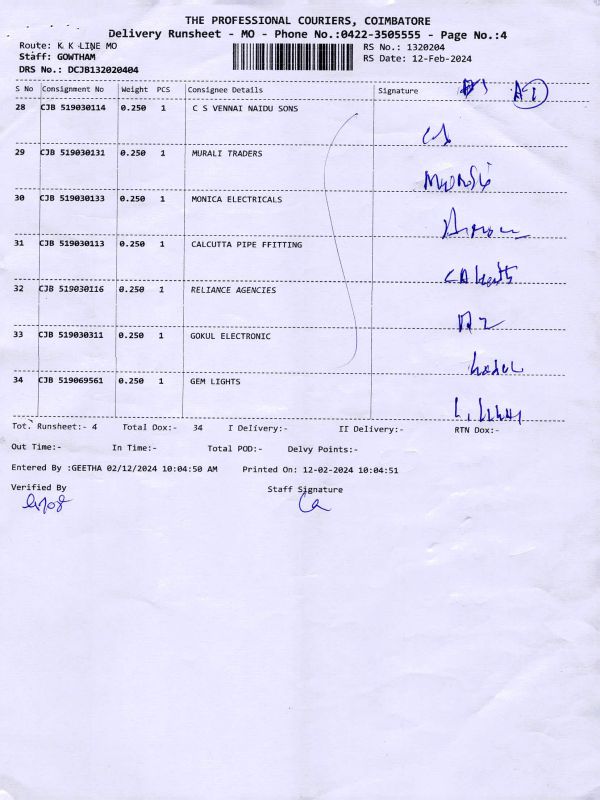 THE PROFESSIONAL COURIERS, COIMBATORE
Delivery Runsheet - MO - Phone No.:0422-3505555 - Page No.:4
Route: K K LINE MO RS No.: 1320204
Staff: GOWTHAM RS Date: 12-Feb-2024
DRS No.: DCJB132020404
S No Consignment No Weight PCS Consignee Details Signature
28 CJB 519030114 0.250 1 C S VENNAI NAIDU SONS
29 CJB 519030131 0.250 1 MURALI TRADERS
30 CJB 519030133 0.250 1 MONICA ELECTRICALS
31 CJB 519030113 0.250 1 CALCUTTA PIPE FFITTING
32 CJB 519030116 0.250 1 RELIANCE AGENCIES
33 CJB 519030311 0.250 1 GOKUL ELECTRONIC
34 CJB 519069561 0.250 1 GEM LIGHTS
Tot. Runsheet:- 4 Total Dox:- 34 I Delivery:- II Delivery:- RTN Dox:-
Out Time:- In Time:- Total POD:- Delvy Points:-
Entered By :GEETHA 02/12/2024 10:04:50 AM Printed On: 12-02-2024 10:04:51
Verified By Staff Signature